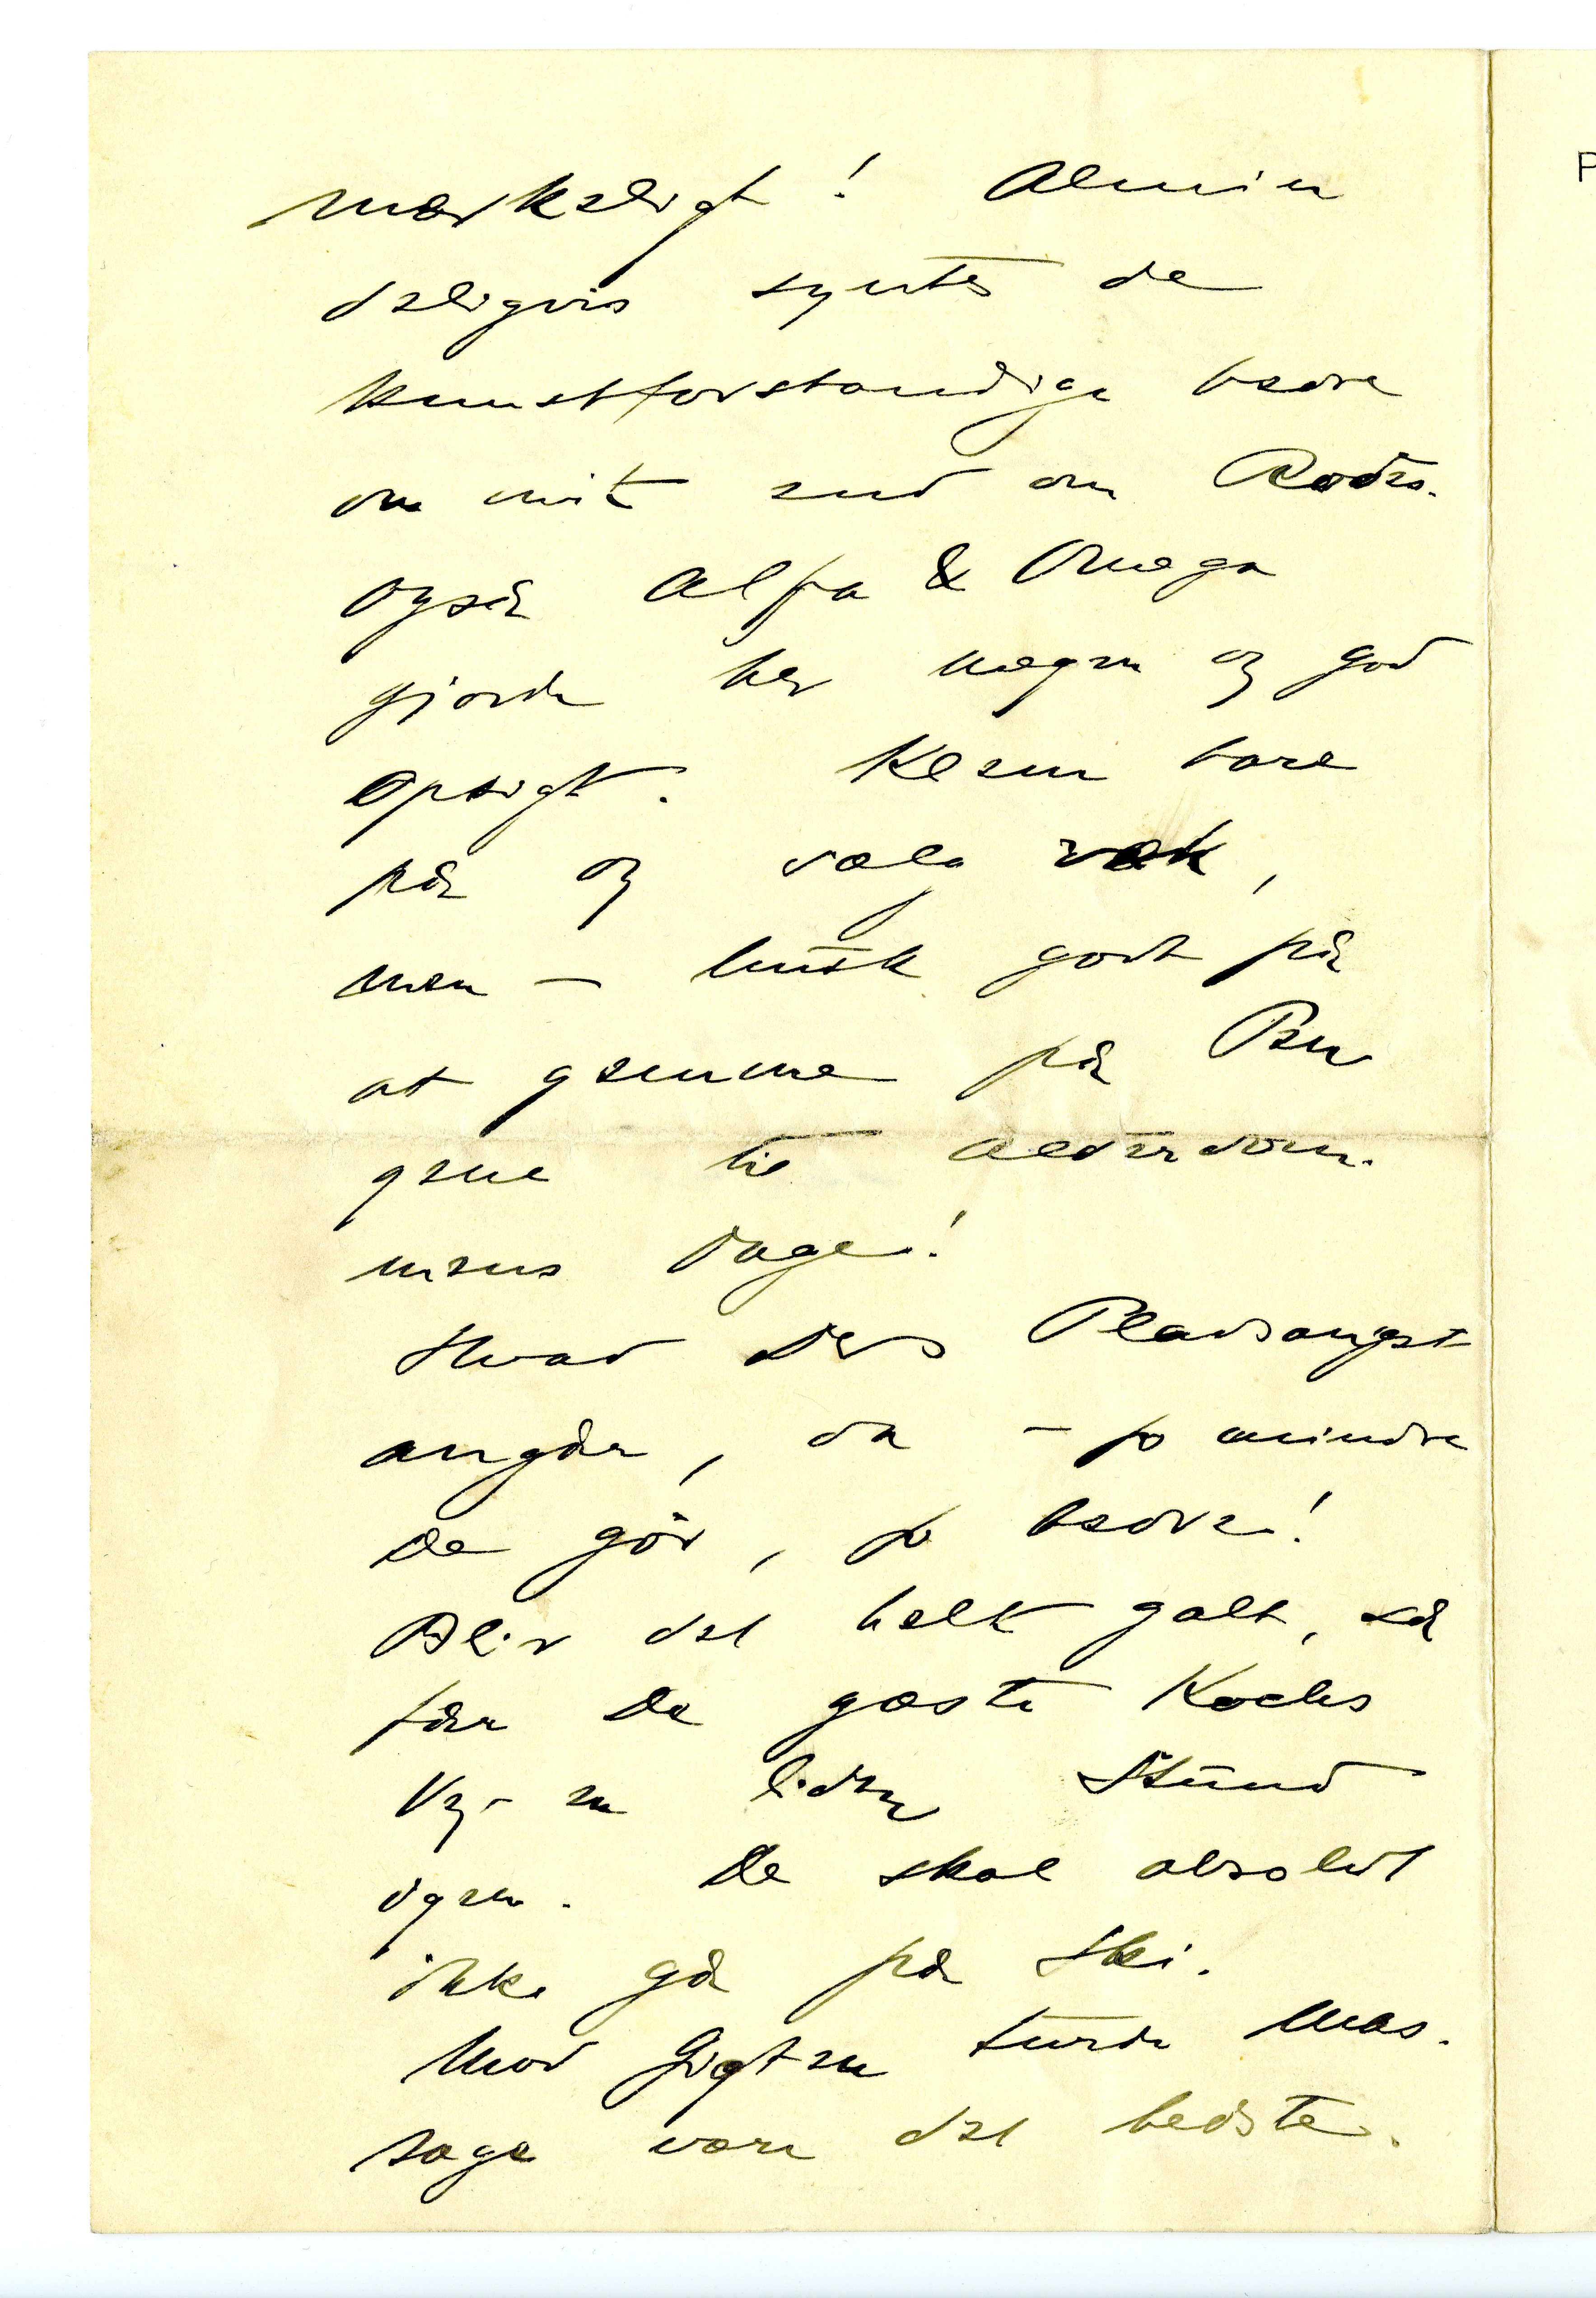 mærkeligt! Almin
deligvis syntes de
kunstforstandige bedre
om mit end om Rodes.
også Alfa & Omega
gjorde her megen og god
opsigt. Klem bare
på og sælg væk,
men – husk godt på
at gemme på Pen
gene til alderdom.
mens Dage!
Hvad Ders Pladsangst
angår, da – jo mindre
De gör, jo bedre!
Blir det helt galt, så
får De gæste Kochs
Vej en liden Stund
igen. De skal absolut
ikke gå på Ski.
Mod Gigten turde Mas.
sage være det bedste.
P